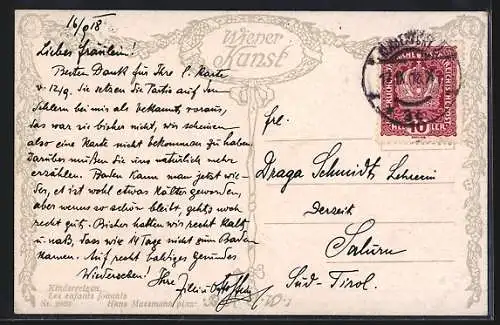 16/9 18
Wiener
Kunst
Liebes Fräulein!
Besten Dank für Ihre l. Karte
v. 12/9. Sie setzen die Partie auf den
Schlern bei mir als bekannt voraus,
das war sie bisher nicht, wir scheinen
also eine Karte nicht bekommen zu haben.
Darüber müßen Sie uns natürlich mehr
erzählen. Baden kann man jetzt wie-
der, es ist wohl etwas kälter geworden,
aber wenn es so schön bleibt, geht's noch
recht gut. Bisher hatten wir recht kalt
u. naß, dass wir 14 Tage nicht zum Baden
kamen. Auf recht baldiges Gesundes
Wiedersehen! Ihre
Frl.
Draga Schmidt, Lehrerin
derzeit
Salurn
Süd-Tirol.
10 HELLER
Kinderreigen.
Les enfants joyeux
Hans Massmann pinx.